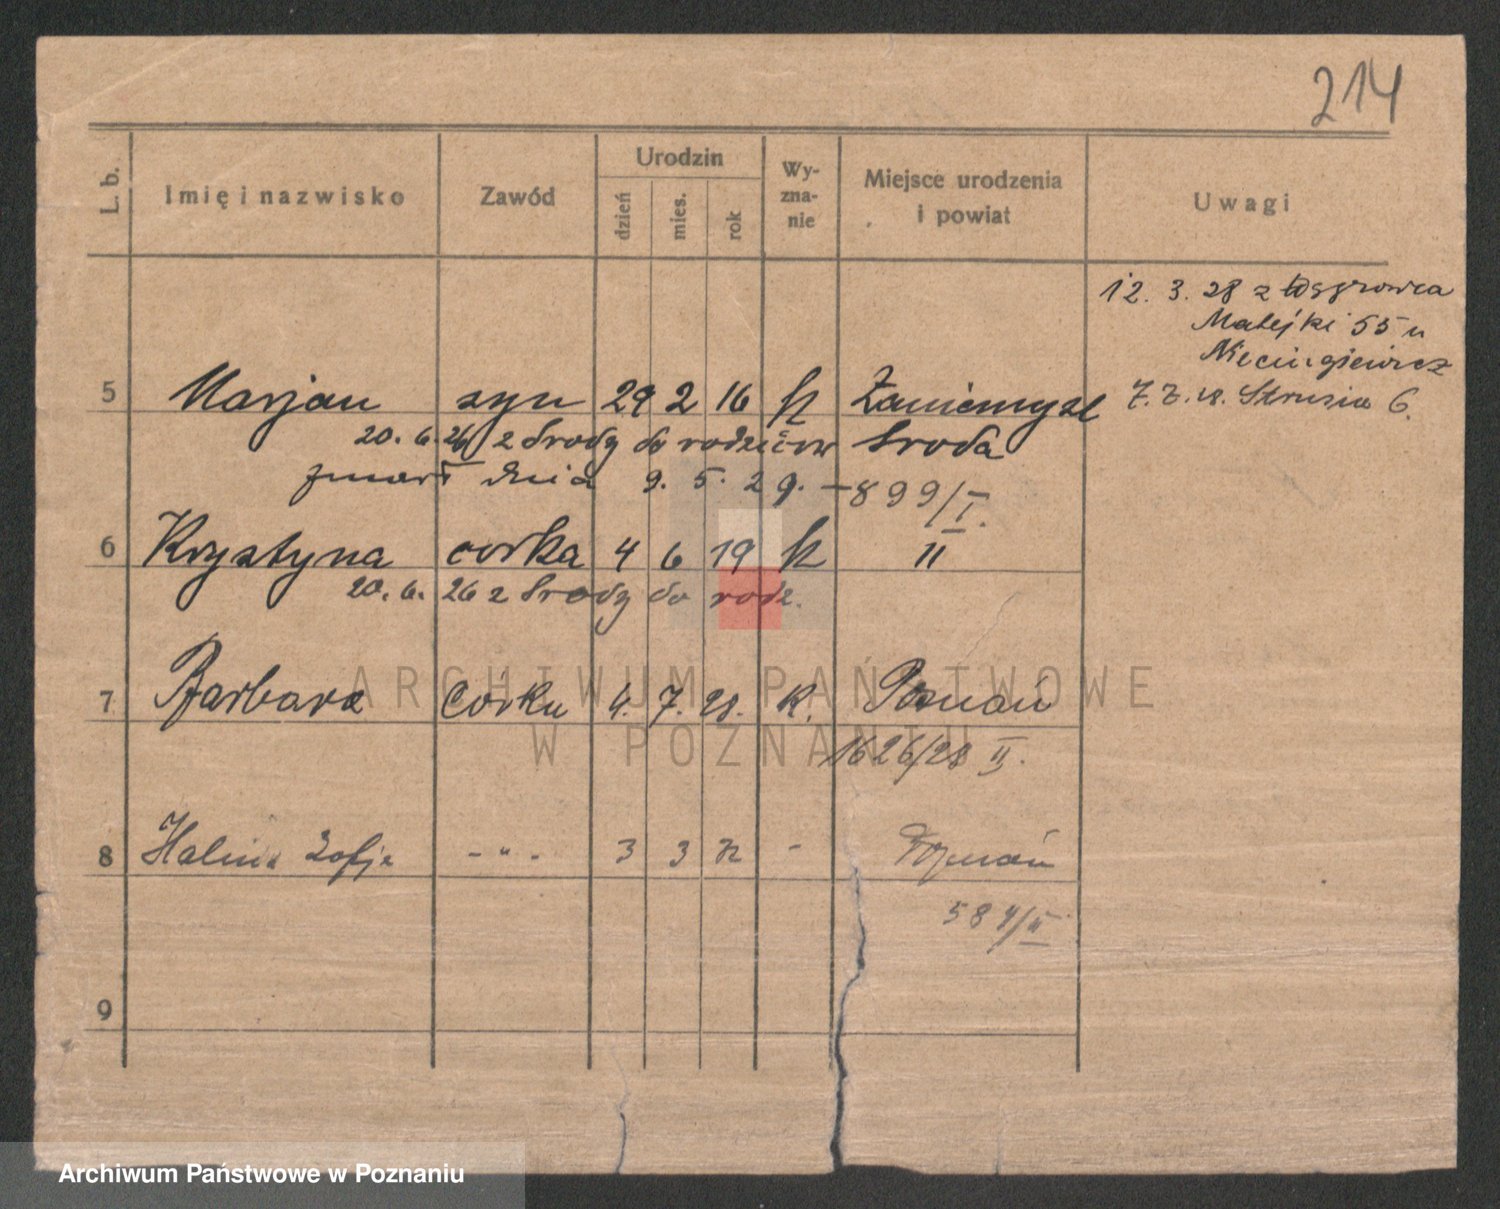 214
L. b. Imię i nazwisko Zawód Urodzin dzień mies. rok Wy-zna-nie Miejsce urodzenia i powiat Uwagi
12. 3. 28 z Wągrowca
Matejki 55 u
5 Marjan syn 29 2 16 k Zaniemyśl 7. 7. 28. Strusia 6.
20. 6. 26 z Środy do rodziców Środa
zmarł dnia 9. 5. 29. – 899/I.
6 Krystyna córka 4 6 19 k 11
20. 6. 26 z Środy do rodz.
7 Barbara córka 4. 7. 28. k. Poznań
1626/28 II.
8 Halina Zofja - " - 3 3 - Poznań
584/II
9
ARCHIWUM PAŃSTWOWE
W POZNANIU
Archiwum Państwowe w Poznaniu